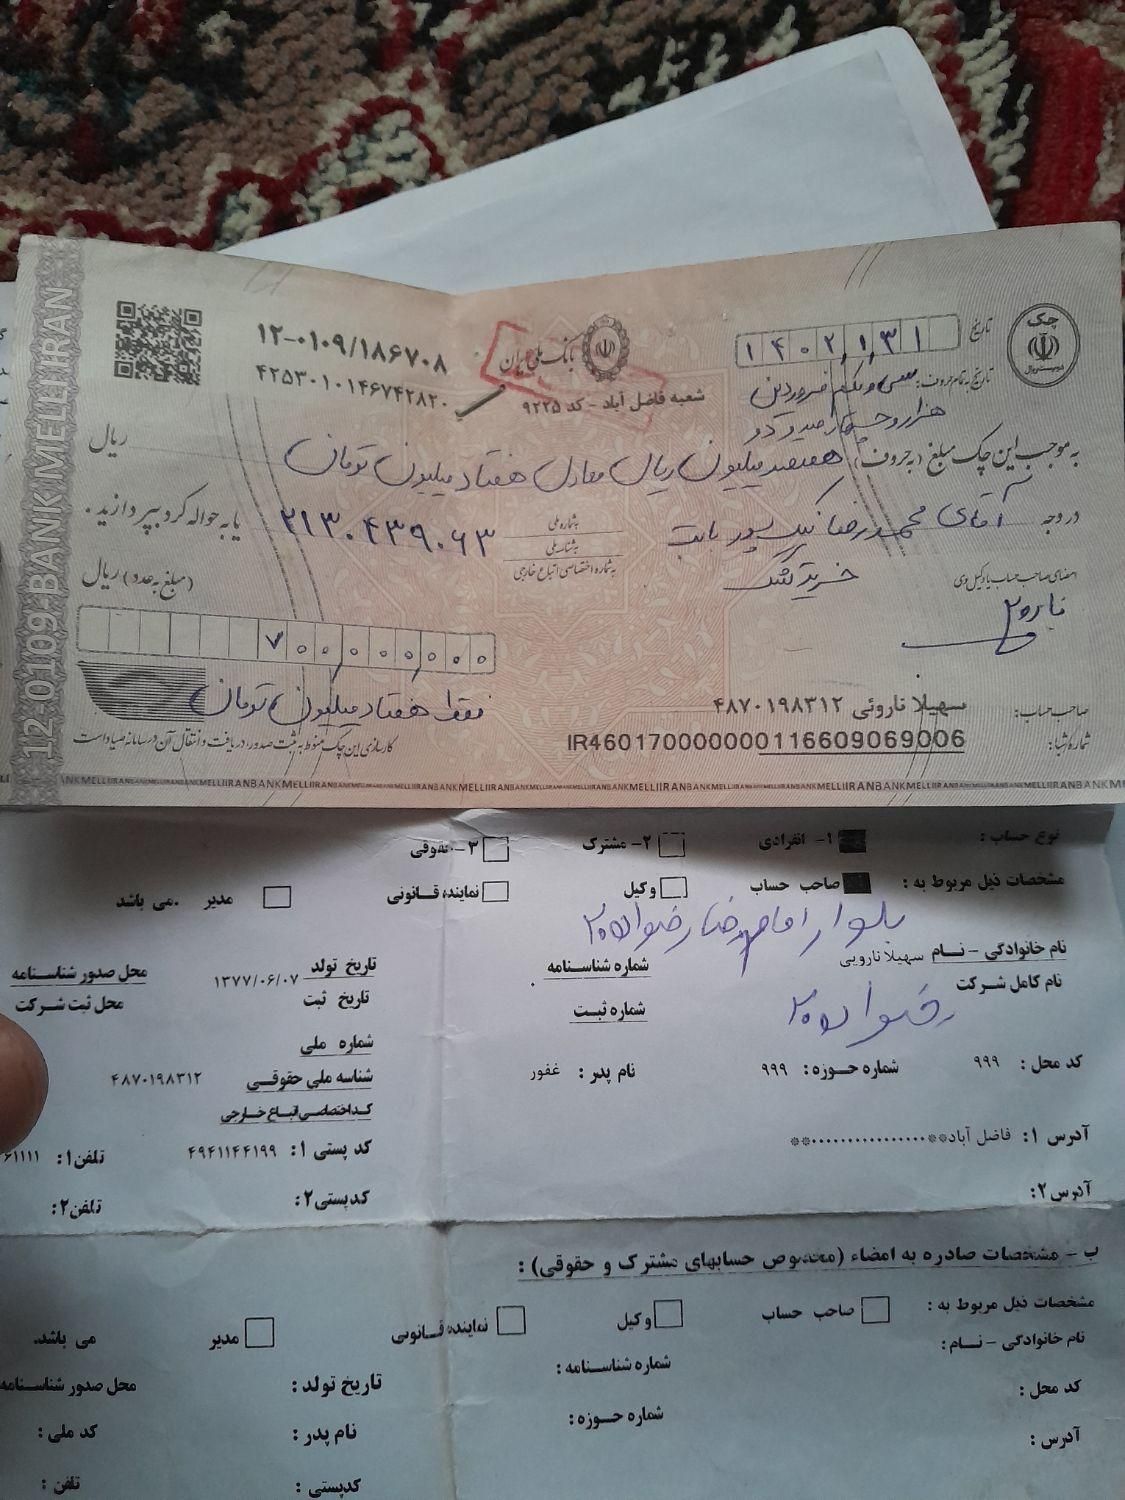 12-0109 BANK MELLI IRAN
چک
تاریخ ۱۴۰۲,۱,۳۱
بانک ملی ایران
۱۲-۰۱۰۹/۱۸۶۷۰۸
۴۲۵۳۰۱۰۱۴۶۷۴۲۸۲۰
شعبه فاضل آباد - کد ۹۲۲۵
تاریخ به تمام حروف: سی و یکم فروردین
هزار و چهارصد و دو
به موجب این چک مبلغ (به حروف) هفتصد میلیون ریال معادل هفتاد میلیون تومان ریال
در وجه آقای محمدرضا نیک پور بابت
به شماره ملی ۲۱۳۰۴۳۹۰۶۳ یا به حواله کرد بپردازید.
به شناسه ملی
به شماره اختصاصی اتباع خارجی
خرید تشک
امضای صاحب حساب یا وکیل وی
(مبلغ به عدد) ریال
۷۰۰,۰۰۰,۰۰۰
فقط هفتاد میلیون تومان
صاحب حساب: سهیلا ناروئی ۴۸۷۰۱۹۸۳۱۲
شماره شبا: IR460170000000116609069006
کارسازی این چک منوط به ثبت صدور، دریافت و انتقال آن در سامانه صیاد است
BANKMELLIIRANBANKMELLIIRANBANKMELLIIRANBANKMELLIIRAN
نوع حساب : ۱- انفرادی ۲- مشترک ۳- حقوقی
مشخصات ذیل مربوط به : صاحب حساب وکیل نماینده قانونی مدیر می باشد.
بلوار امام رضا رضوان ۲۰
نام خانوادگی - نام سهیلا نارویی شماره شناسنامه تاریخ تولد ۱۳۷۷/۰۶/۰۷ محل صدور شناسنامه
نام کامل شرکت شماره ثبت تاریخ ثبت محل ثبت شرکت
رضوان ۲۰
شماره ملی
کد محل : ۹۹۹ شماره حوزه: ۹۹۹ نام پدر : غفور شناسه ملی حقوقی ۴۸۷۰۱۹۸۳۱۲
کد اختصاصی اتباع خارجی
آدرس ۱: فاضل آباد**................** کد پستی ۱: ۴۹۴۱۱۴۴۱۹۹ تلفن۱: ۶۱۱۱۱
آدرس ۲: کدپستی۲: تلفن۲:
ب - مشخصات صادره به امضاء (مخصوص حسابهای مشترک و حقوقی) :
مشخصات ذیل مربوط به : صاحب حساب وکیل نماینده قانونی مدیر می باشد.
نام خانوادگی - نام: شماره شناسنامه : تاریخ تولد : محل صدور شناسنامه
کد محل : شماره حوزه: نام پدر : کد ملی :
آدرس : کدپستی : تلفن :